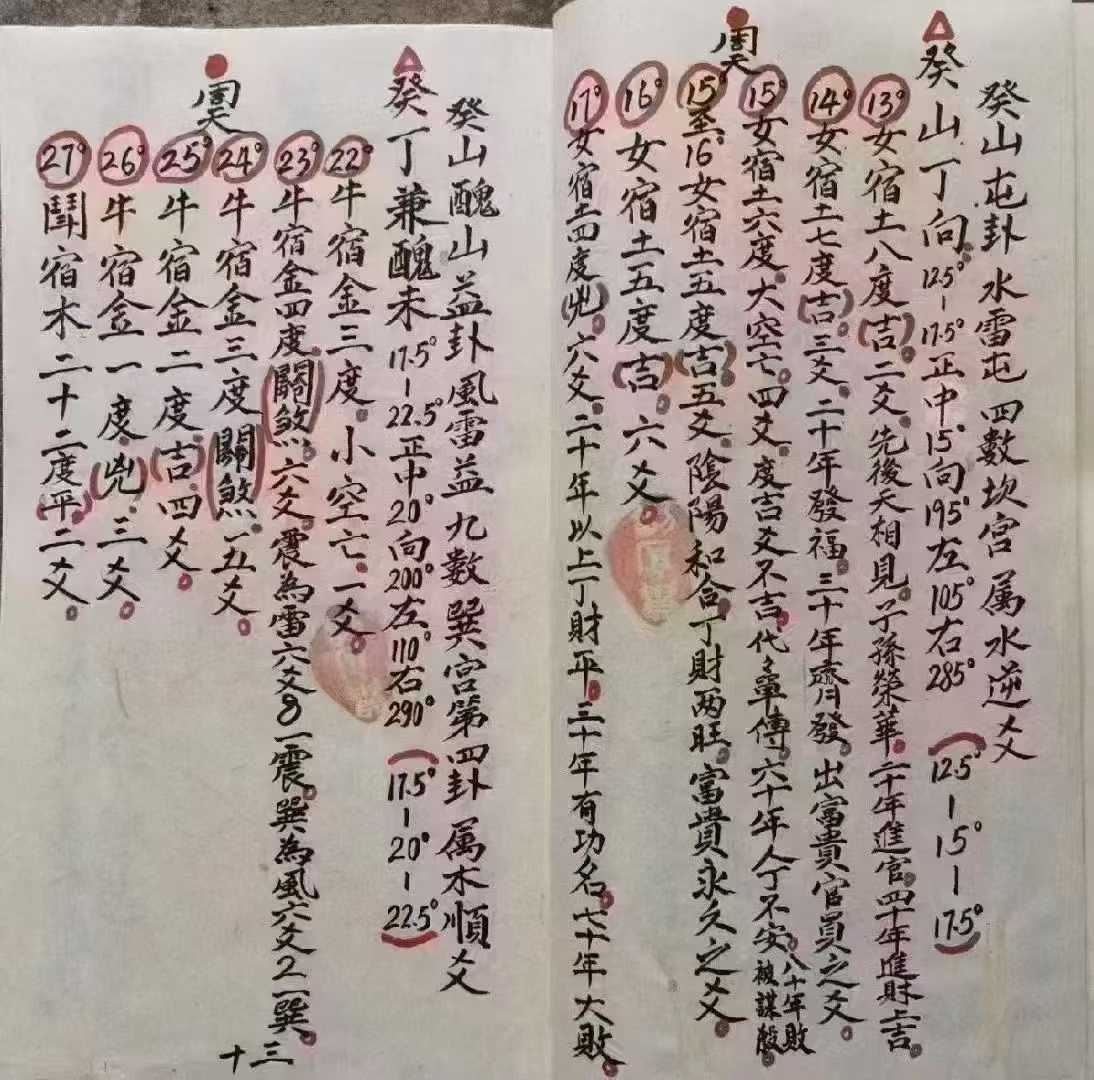 癸山屯卦水雷屯四數坎宮属水逆爻
癸山丁向12.5°-17.5°正中15°向195°左105°右285°(12.5°-15°-17.5°)
13°女宿土八度(吉)二爻。先後天相見。子孫榮華。二十年進官。四十年進財上吉。
14°女宿土七度(吉)三爻。二十年發福。三十年齊發。出富貴官員之爻。
周天
15°女宿土六度。大空亡。四爻。度吉爻不吉。代々單傳。六十年人丁不安。八十年敗被謀殺。
15°至16°女宿土五度(吉)五爻。陰陽和合丁財两旺。富貴永久之爻。
16°女宿土五度(吉)。六爻。
17°女宿土四度(兇)。六爻。二十年以上丁財平。三十年有功名。七十年大敗。
癸山醜山益卦風雷益九數巽宮第四卦属木順爻
癸丁兼醜未17.5°-22.5°正中20°向200°左110°右290°(17.5°-20°-22.5°)
22°牛宿金三度。小空亡。一爻。
23°牛宿金四度。(關煞)。六爻。震為雷六爻8一震。巽為風六爻2一巽。
周天
24°牛宿金三度(關煞)。五爻。
25°牛宿金二度(吉)四爻。
26°牛宿金一度。(兇)。三爻。
27°鬪宿木二十二度(平)。二爻。
十三